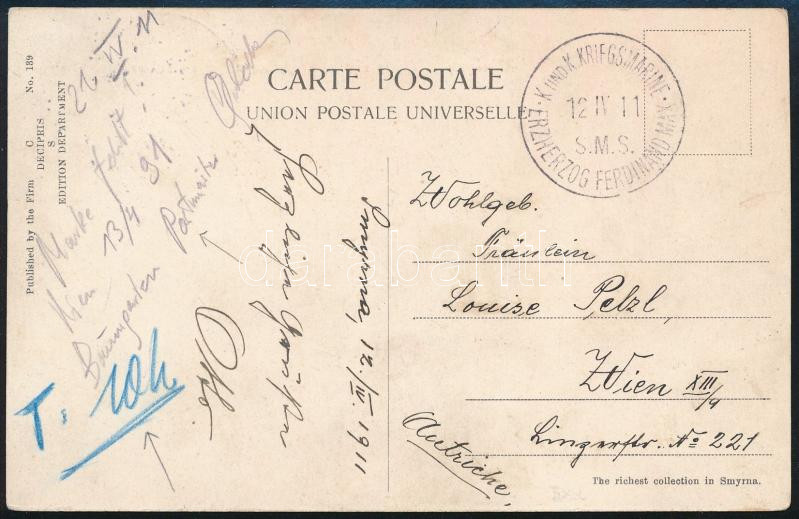 CARTE POSTALE
UNION POSTALE UNIVERSELLE
K. UND K. KRIEGSMARINE
12 IV 11
S.M.S.
ERZHERZOG FERDINAND MAX
Published by the Firm
No. 139
DECIPRIS
EDITION DEPARTMENT
Marke fehlt
Wien 13/4 91
Baumgarten
21 IV 11
T. 10h
Smyrna, 12./IV. 1911
Otto
Wohlgeb.
Fräulein
Louise Pelzl,
Wien XIII/4
Linzerstr. No 221
Autriche,
The richest collection in Smyrna.
darabanth